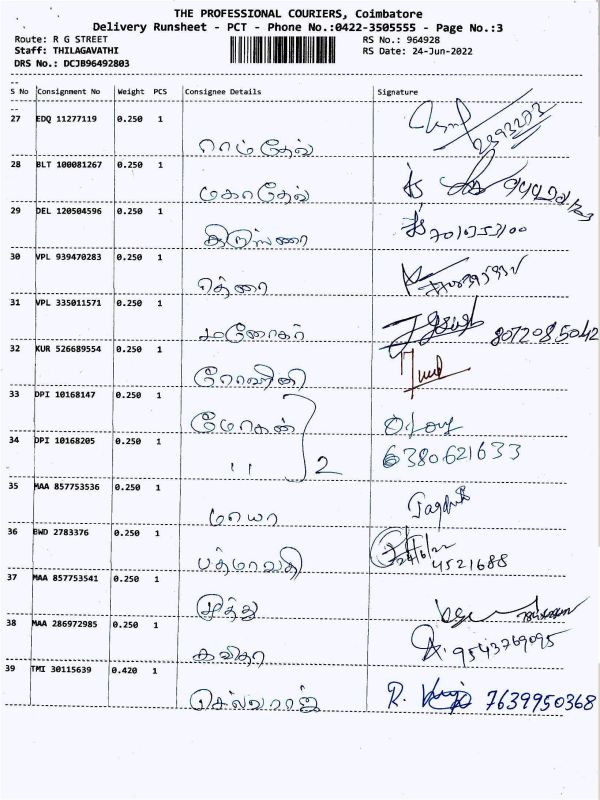 THE PROFESSIONAL COURIERS, Coimbatore
Delivery Runsheet - PCT - Phone No.:0422-3505555 - Page No.:3
Route: R G STREET RS No.: 964928
Staff: THILAGAVATHI RS Date: 24-Jun-2022
DRS No.: DCJB96492803
S No Consignment No Weight PCS Consignee Details Signature
27 EDQ 11277119 0.250 1
ராம்தேவ்
28 BLT 100081267 0.250 1
மகாதேவ்
29 DEL 120504596 0.250 1
30 VPL 939470283 0.250 1
31 VPL 335011571 0.250 1
மனோகர் 8072085042
32 KUR 526689554 0.250 1
33 DPI 10168147 0.250 1
மோகன்
34 DPI 10168205 0.250 1 6380621633
" 2
35 MAA 857753536 0.250 1
மாயா
36 BWD 2783376 0.250 1
பத்மாவதி 4521688
37 MAA 857753541 0.250 1
முத்து
38 MAA 286972985 0.250 1
கவிதா 9543769095
39 TMI 30115639 0.420 1
செல்வராஜ் R. 7639950368